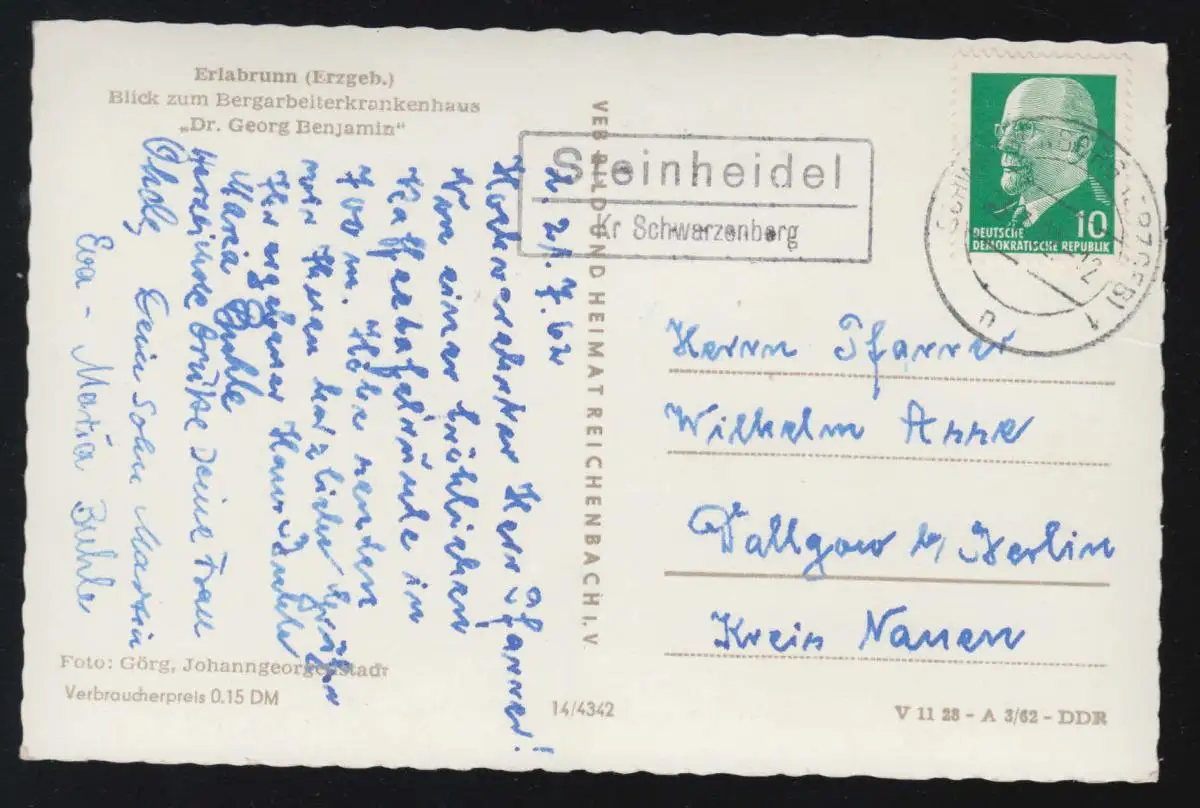 Erlabrunn (Erzgeb.)
Blick zum Bergarbeiterkrankenhaus
„Dr. Georg Benjamin"
Steinheidel
Kr Schwarzenberg
10
DEUTSCHE
DEMOKRATISCHE REPUBLIK
21.7.62
Hochverehrter Herr Pfarrer!
Von einer fröhlichen
Kaffeetafelrunde in
700 m. Höhe senden
wir Ihnen herzliche Grüße
Ihr ergebener Hans
Maria Buhle
herzliche Grüße Deine Frau
Dein Sohn Martin
Eva-Maria Buhle
VEB BILD UND HEIMAT REICHENBACH I. V
Herrn Pfarrer
Wilhelm
Dallgow b/ Berlin
Kreis Nauen
Foto: Görg, Johanngeorgenstadt
Verbraucherpreis 0.15 DM
14/4342
V 11 28 - A 3/62 - DDR